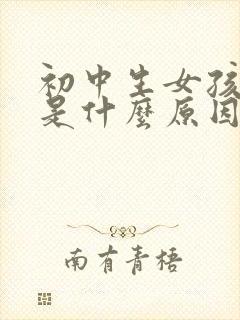 初中生女孩
是什麼原因
南有青梧